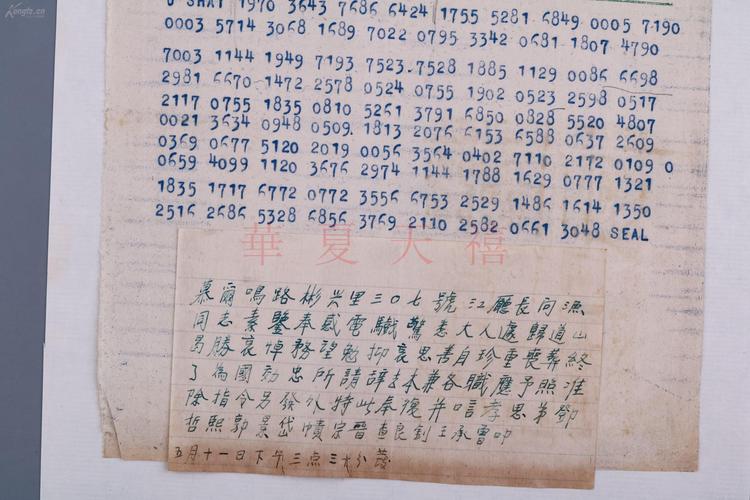 Kongfz.cn
U SHAI 1970 3643 7686 6424 1755 5281 6849 0005 7190
0003 5714 3068 1689 7022 0795 3342 0681 1807 4790
7003 1144 1949 7193 7523 7528 1885 1129 0086 6698
2981 6670 1472 2578 0524 0755 1902 0523 2598 0517
2117 0755 1835 0810 5261 3791 6850 0828 5520 4807
0021 3634 0948 0509 1813 2076 6153 6588 0637 2609
0369 0677 5120 2019 0056 3564 0402 7110 2172 0109 0
0659 4099 1120 3676 2974 1144 1788 1629 0777 1321
1835 1717 6772 0772 3556 6753 2529 1486 1614 1350
2516 2686 5328 6856 3769 2110 2582 0661 3048 SEAL
華夏天禧
慕爾鳴路彬興里三〇七號江廳長問漁
同志素鑒奉感電驚悉大人遽歸道山
曷勝哀悼務望勉抑哀思善自珍重喪葬終
了為國効忠所請辞去本兼各職應予照准
除指令另發外特此奉復并唁孝思弟鄧
哲熙郭景岱宗晉查良釗王承曾叩
五月十一日下午三点三十分發